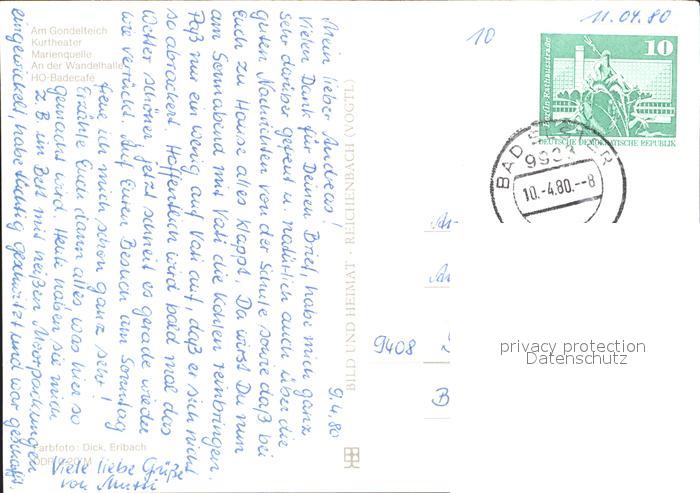 Am Gondelteich
Kurtheater
Marienquelle
An der Wandelhalle
HO-Badecafé
9.4.80
Mein lieber Andreas!
Vielen Dank für Deinen Brief, habe mich ganz
sehr darüber gefreut u. natürlich auch über die
guten Nachrichten von der Schule sowie daß bei
Euch zu Hause alles klappt. Da wirst Du nun
am Sonnabend mit Vati die Kohlen reinbringen.
Paß nur ein wenig auf Vati auf, daß er sich nicht
so abrackert. Hoffentlich wird bald mal das
Wetter schöner, jetzt schneit es gerade wieder
wie verrückt. Auf Euren Besuch am Sonntag
freue ich mich schon ganz sehr!
Erzähle Euch dann alles, was hier so
gemacht wird. Heute haben sie mich
z.B. im Bett mit heißen Moorpackungen
eingewickelt, habe tüchtig geschwitzt und war geschafft.
Viele liebe Grüße
von Mutti
Farbfoto: Dick, Erlbach
BILD UND HEIMAT · REICHENBACH (VOGTL)
10
11.04.80
10
DEUTSCHE DEMOKRATISCHE REPUBLIK
BAD ELSTER
9933
10.-4.80.--8
An
9408
B
privacy protection
Datenschutz